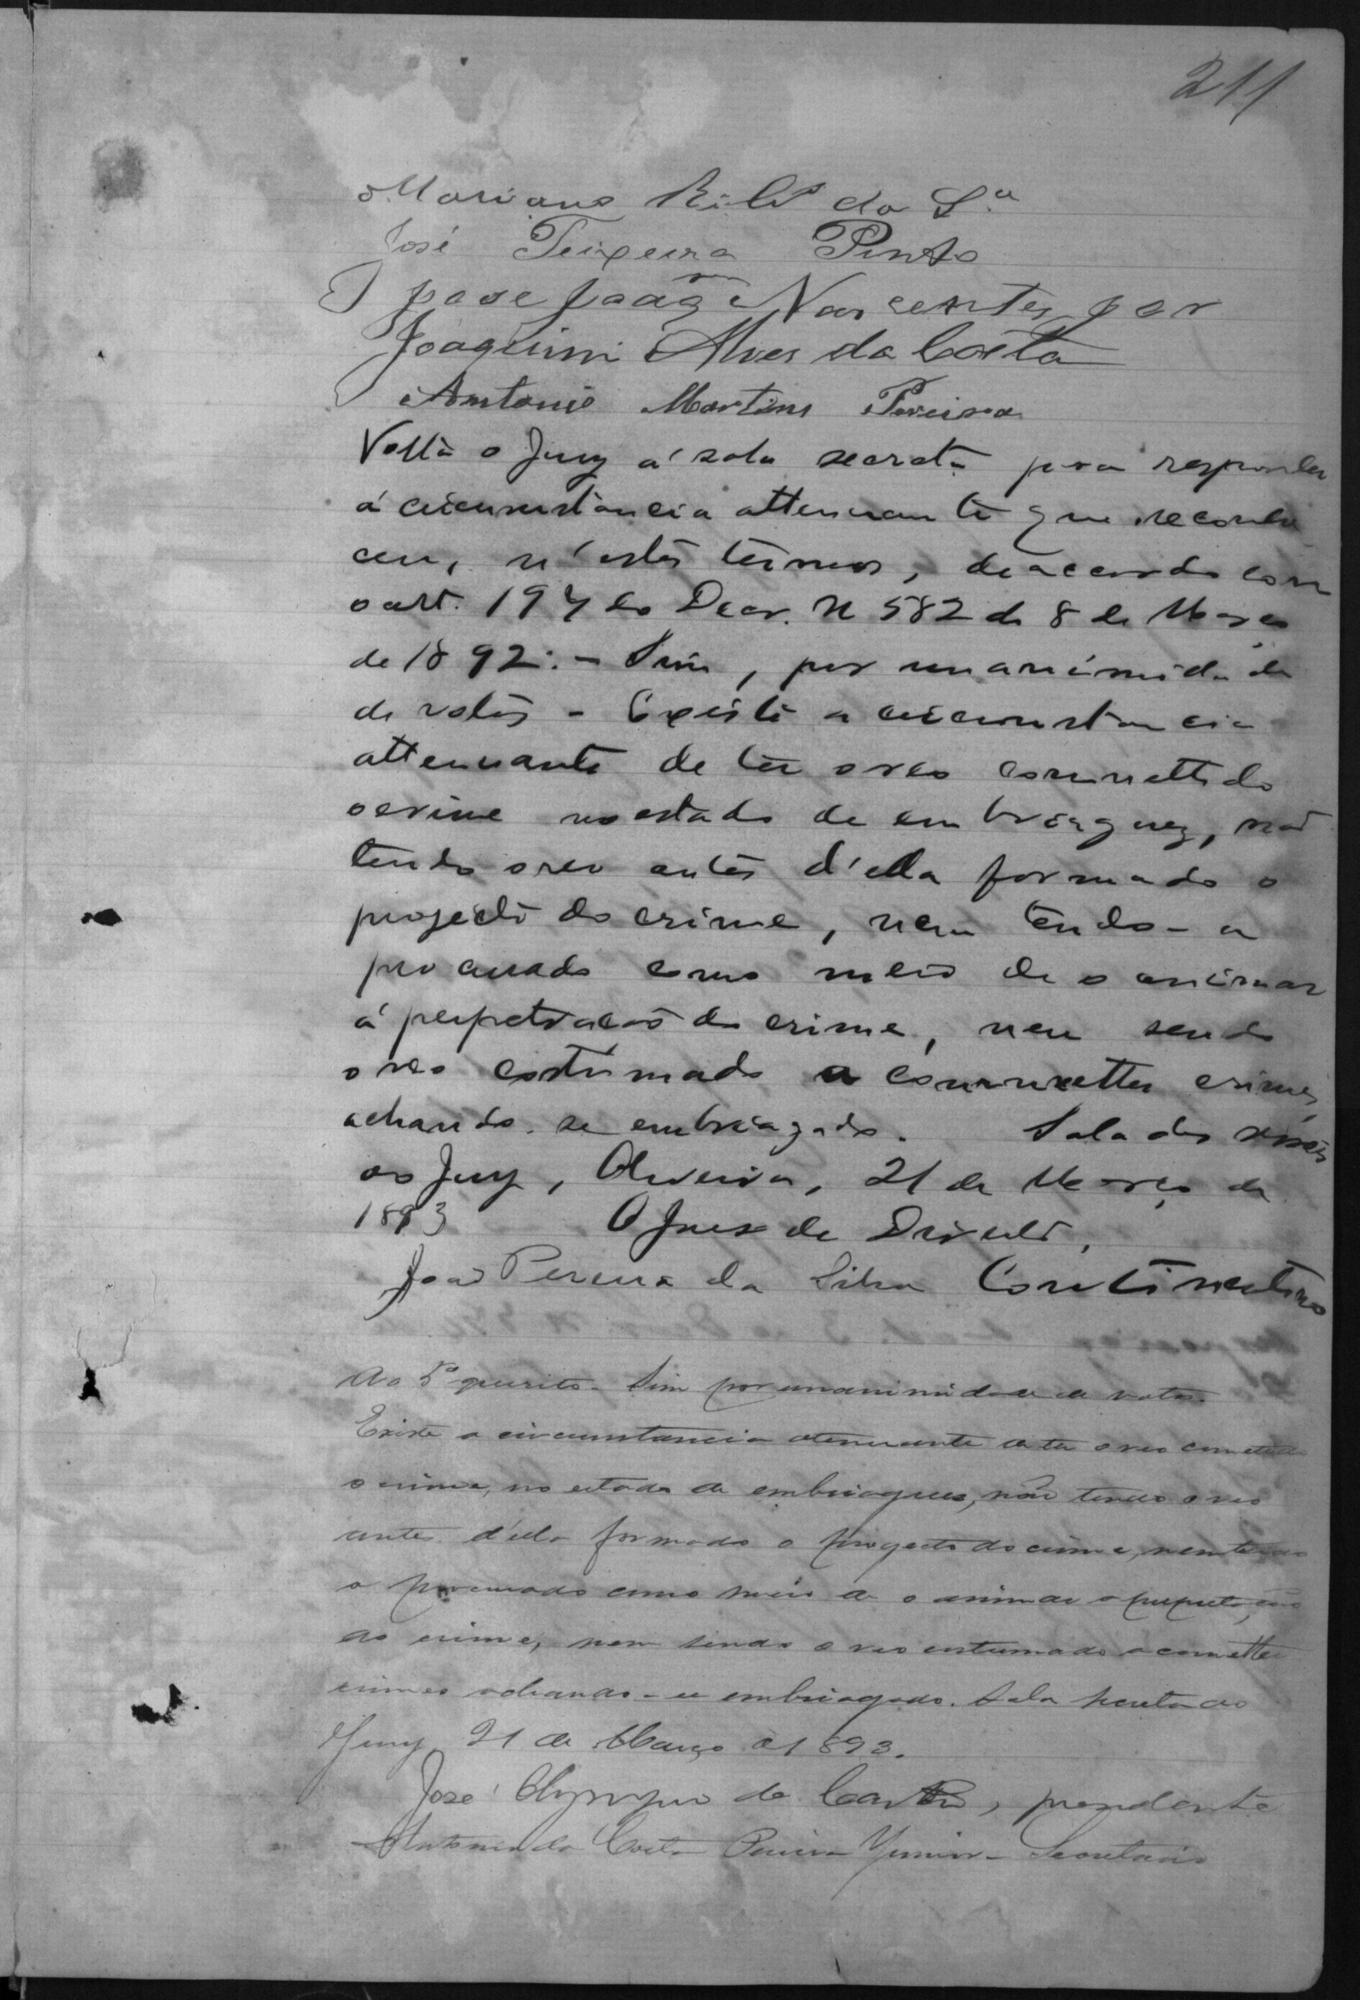 211
Mariano Rib.º da S.ª
José Teixeira Pinto
José Joaq.m Nascentes
Joaquim Alves da Costa
Antonio Martins Pereira
Volta o Jury á sala secreta para responder
á circunstancia attenuante que reconhe
ceu, n'estes termos, de accordo com
o art. 197 do Decr. N 582 de 8 de Março
de 1892: - Sim, por unanimidade
de votos - Existe a circunstancia
attenuante de ter o reo commettido
o crime no estado de embriaguez, não
tendo o reo antes d'ella formado o
projecto do crime, nem tendo-a
procurado como meio de o animar
á perpetração do crime, nem sendo
o reo costumado a commetter crimes,
achando-se embriagado. Sala das sessões
do Jury, Oliveira, 21 de Março de
1893 O Juiz de Direito,
João Pereira da Silva Continentino
Ao 5º quesito - Sim por unanimidade de votos.
Existe a circumstancia atenuante de ter o reo cometido
o crime, no estado de embriaguez, não tendo o reo
antes d'ella formado o progecto do crime, nem tendo
a procurado como meio de o animar a perpetração
do crime, nem sendo o reo costumado a cometter
crimes achando-se embriagado. Sala secreta do
Jury 21 de Março de 1893.
José Olympio de Castro, prezidente
Antonio da Costa Pereira Junior - Secretario